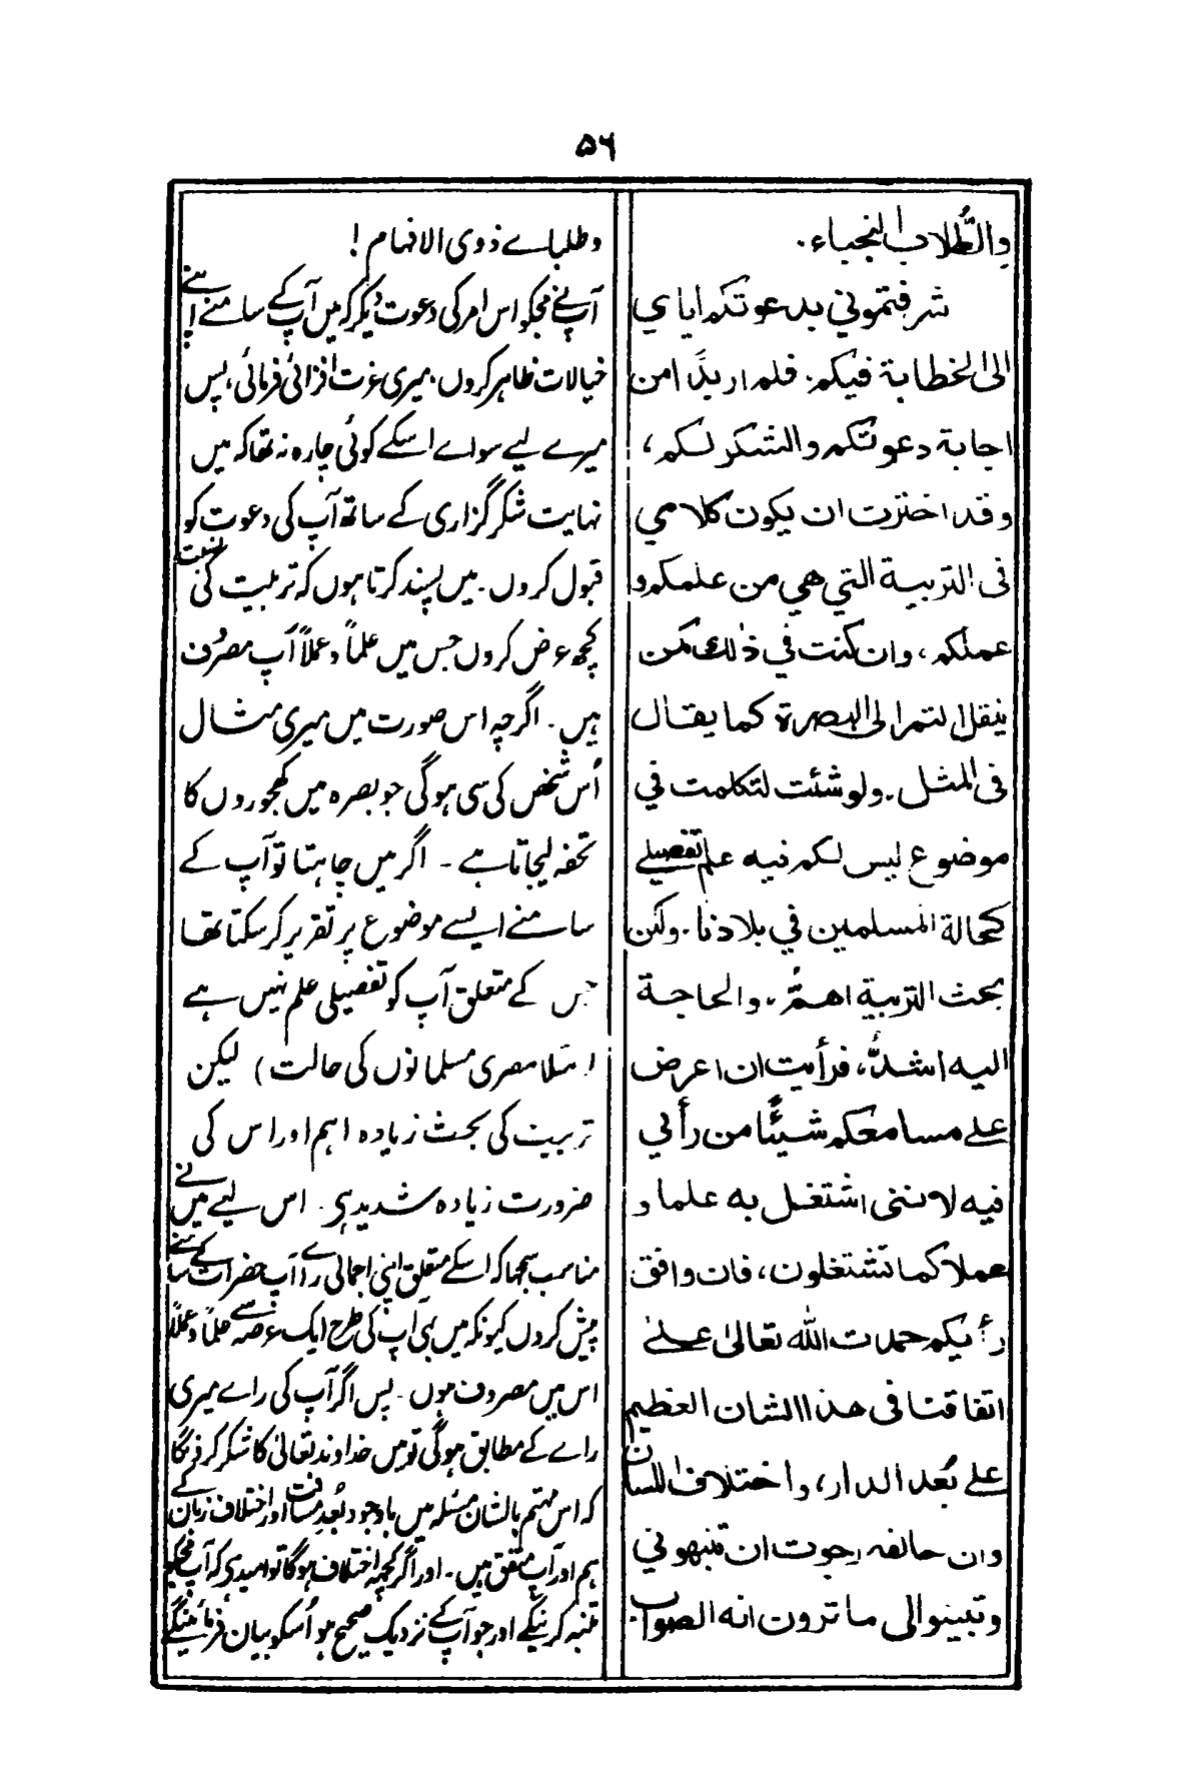 ۵۶
والطُّلاب النجباء.
شرفتموني بدعوتكم اياي
الى الخطابة فيكم. فلم ار بدًّا من
اجابة دعوتكم والشكر لكم،
وقد اخترت ان يكون كلامي
فى التربية التي هي من علمكم و
عملكم، وان كنت في ذلك كمن
ينقل التمر الى البصرة كما يقال
فى المثل. ولو شئت لتكلمت في
موضوع ليس لكم فيه علم تفصيلے
كحالة المسلمين في بلادنا. ولكن
بحث التربية اهمُّ، والحاجة
اليه اشدُّ، فرأيت ان اعرض
علے مسامعكم شيئًا من رأيي
فيه لاننى اشتغل به علما و
عملا كما تشتغلون، فان وافق
رأيكم حمدت الله تعالىٰ علے
اتفاقنا فى هذا الشان العظيم
علے بُعد الدار، واختلاف اللسان
وان خالفه رجوت ان تنبهوني
وتبينوا لى ما ترون انه الصواب.
وطلباے ذوی الافہام!
آپنے مجکو اس امر کی دعوت دیکر کہ میں آپ کے سامنے اپنے
خیالات ظاہر کروں، میری عزت افزائی فرمائی، پس
میرے لیے سواے اسکے کوئی چارہ نہ تھا کہ میں
نہایت شکر گزاری کے ساتھ آپ کی دعوت کو
قبول کروں. میں پسند کرتا ہوں کہ تربیت کی نسبت
کچھ عرض کروں جس میں علماً و عملاً آپ مصرُوف
ہیں. اگرچہ اس صورت میں میری مثال
اُس شخص کی سی ہوگی جو بصرہ میں کھجوروں کا
تحفہ لیجاتا ہے - اگر میں چاہتا تو آپ کے
سامنے ایسے موضوع پر تقریر کر سکتا تھا
جس کے متعلق آپ کو تفصیلی علم نہیں ہے
(مثلا مصری مسلمانوں کی حالت) لیکن
تربیت کی بحث زیادہ اہم اور اس کی
ضرورت زیادہ شدید ہی. اس لیے میں نے
مناسب سمجھا کہ اسکے متعلق اپنی اجمالی راے آپ حضرات کے سامنے
پیش کروں کیونکہ میں بھی آپ کی طرح ایک عرصہ سے علماً و عملاً
اس میں مصروف ہوں. پس اگر آپ کی راے میری
راے کے مطابق ہوگی تو میں خداوند تعالیٰ کا شکر کرونگا
کہ اس مہتم بالشان مسئلہ میں باوجود بُعد مسافت اور اختلاف زبان کے
ہم اور آپ متفق ہیں. اور اگر کچھ اختلاف ہوگا تو امید ہی کہ آپ مجکو
متنبہ کرینگے اور جو آپ کے نزدیک صحیح ہو اُسکو بیان فرمائینگے